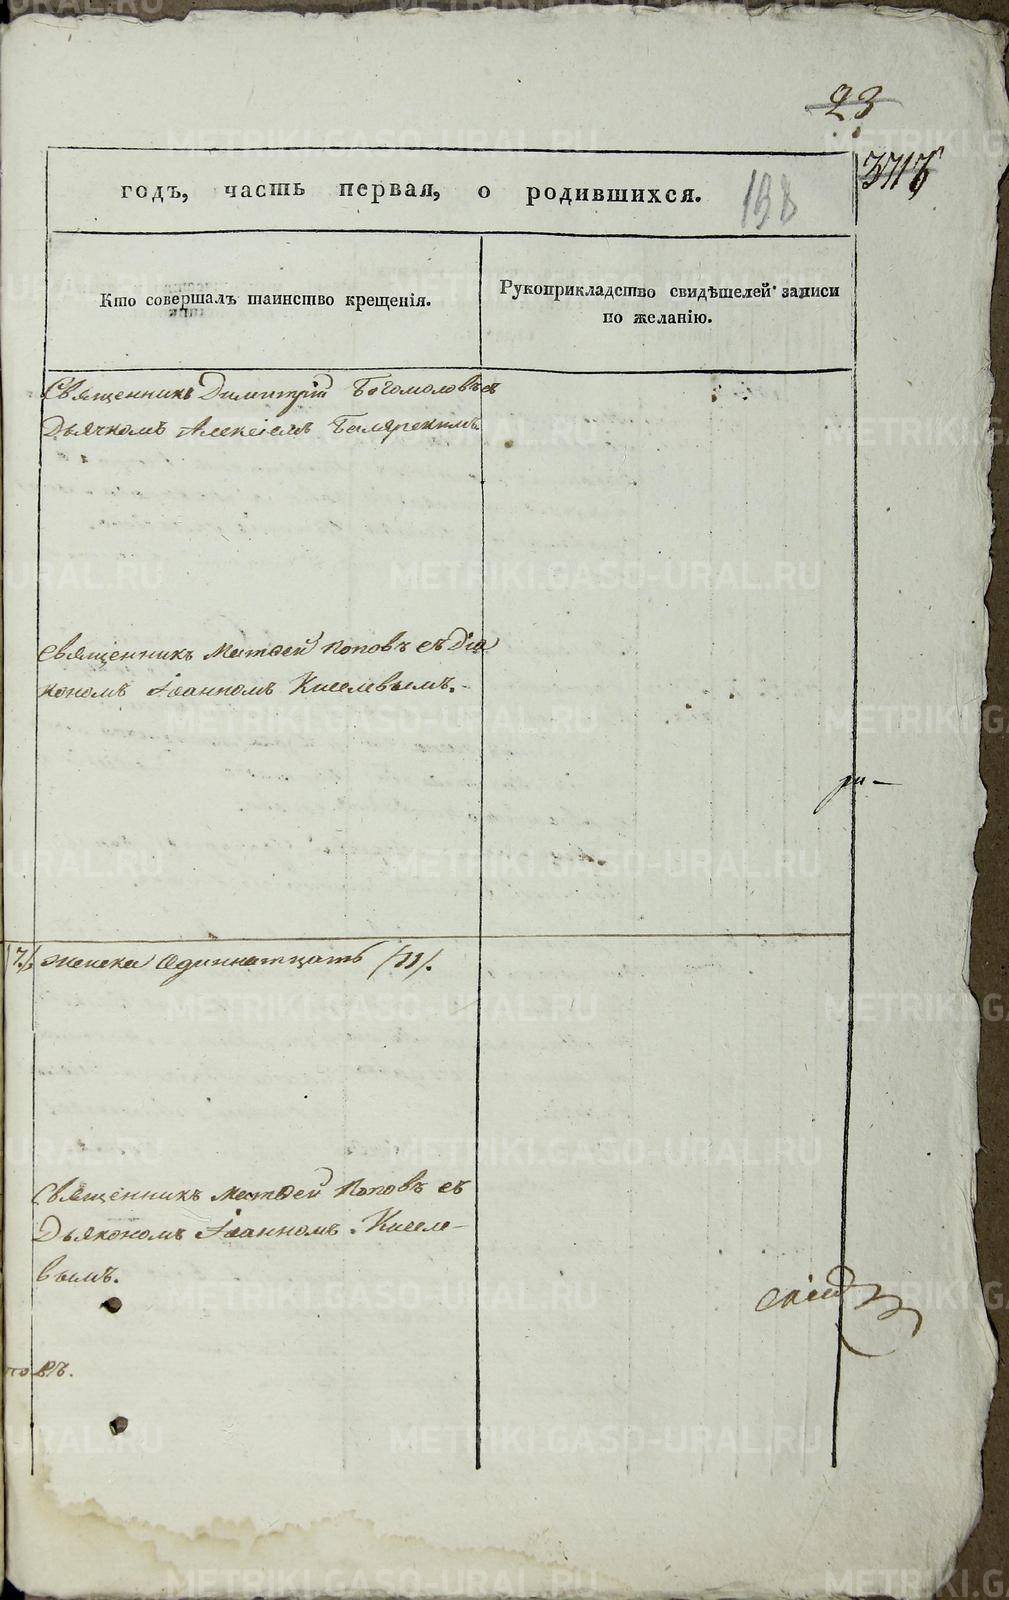 23
годъ, часть первая, о родившихся.
198
Кто совершалъ таинство крещенія.
Рукоприкладство свидѣтелей записи
по желанію.
Священникъ Димитрій Богомоловъ съ
Дьячкомъ Алексіемъ
Священникъ Матвей Поповъ съ Діа
кономъ Іоанномъ Киселевымъ.
ри-
7/. женска одиннатцать /11/.
Священникъ Матвей Поповъ съ
Дьякономъ Іоанномъ Киселе-
вымъ.
повъ.
METRIKI.GASO-URAL.RU